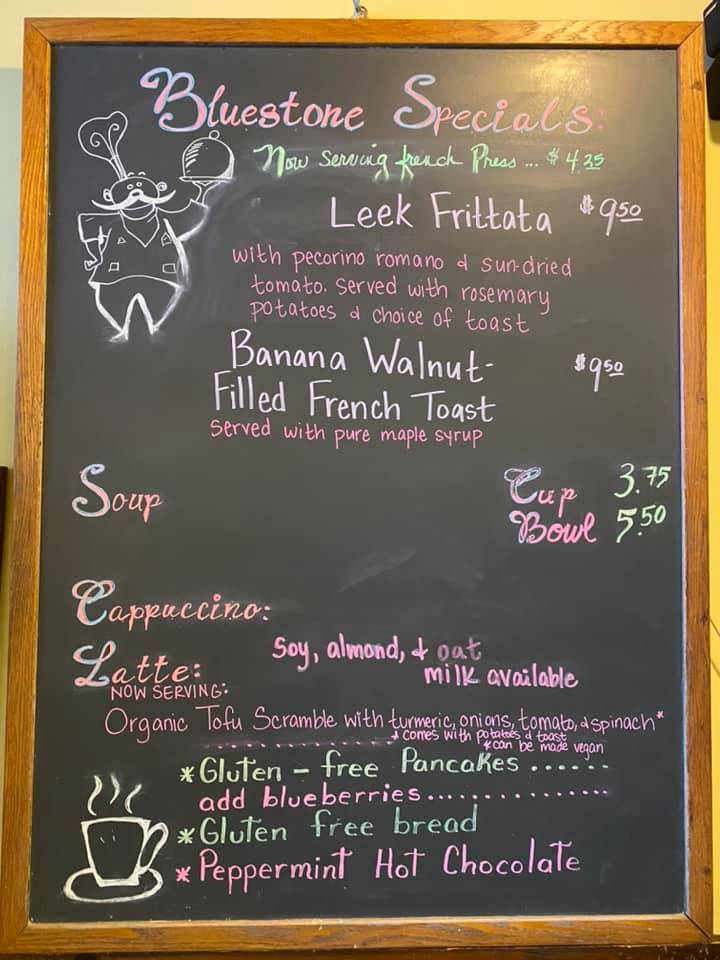 Bluestone Specials:
Now serving french Press ... $4.25
Leek Frittata $9.50
with pecorino romano & sun-dried
tomato. Served with rosemary
potatoes & choice of toast
Banana Walnut- $9.50
Filled French Toast
served with pure maple syrup
Soup Cup 3.75
Bowl 5.50
Cappuccino:
Latte: Soy, almond, & oat
milk available
NOW SERVING:
Organic Tofu Scramble with turmeric, onions, tomato, & spinach*
* comes with potatoes & toast
*can be made vegan
*Gluten-free Pancakes ......
add blueberries...............
*Gluten free bread
*Peppermint Hot Chocolate